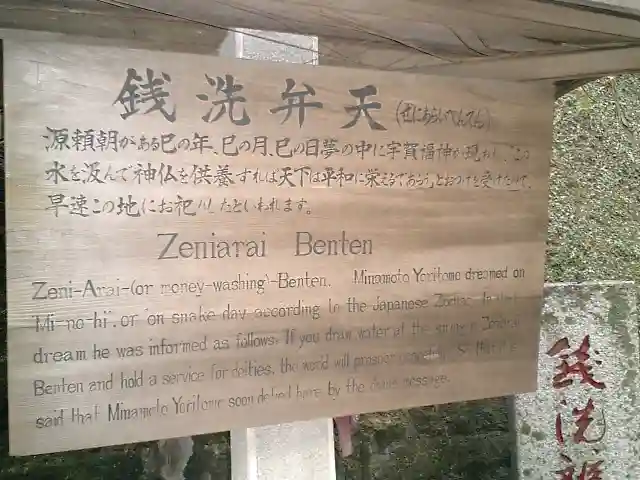 銭洗弁天(ぜにあらいべんてん)
源頼朝がある巳の年、巳の月、巳の日夢の中に宇賀福神が現われ、この
水を汲んで神仏を供養すれば天下は平和に栄えるであろうとおつげを受けたので、
早速この地にお祀りしたといわれます。
Zeniarai Benten
Zeni-Arai-(or money-washing)-Benten. Minamoto Yoritomo dreamed on
'Mi-no-hi', or on snake day according to the Japanese Zodiac. In the
dream he was informed as follows. If you draw water at the spring in
Benten and hold a service for deities, the world will prosper
said that Minamoto Yoritomo soon deified here by the divine message.
銭洗